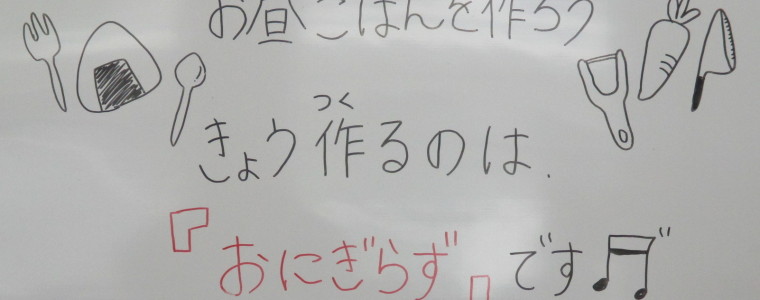 お昼ごはんを作ろう
つく
きょう作るのは.
『おにぎらず』です♬